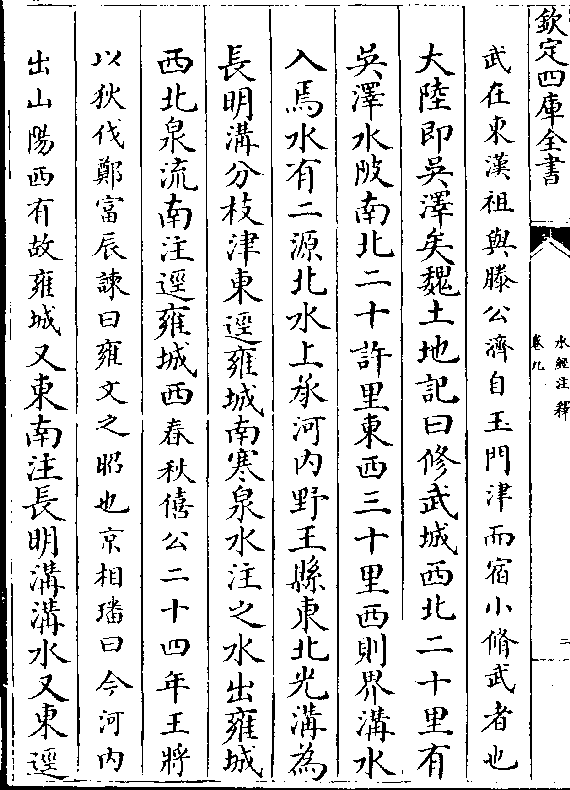 欽定四庫全書
水經注釋
卷九
二
武在東漢祖與滕公濟自玉門津而宿小脩武者也
大陸即吳澤矣魏土地記曰修武城西北二十里有
吳澤水陂南北二十許里東西三十里西則界溝水
入焉水有二源北水上承河内野王縣東北光溝為
長明溝分枝津東逕雍城南寒泉水注之水出雍城
西北泉流南注逕雍城西春秋僖公二十四年王將
以狄伐鄭富辰諫曰雍文之昭也京相璠曰今河内
出山陽西有故雍城又東南注長明溝溝水又東逕